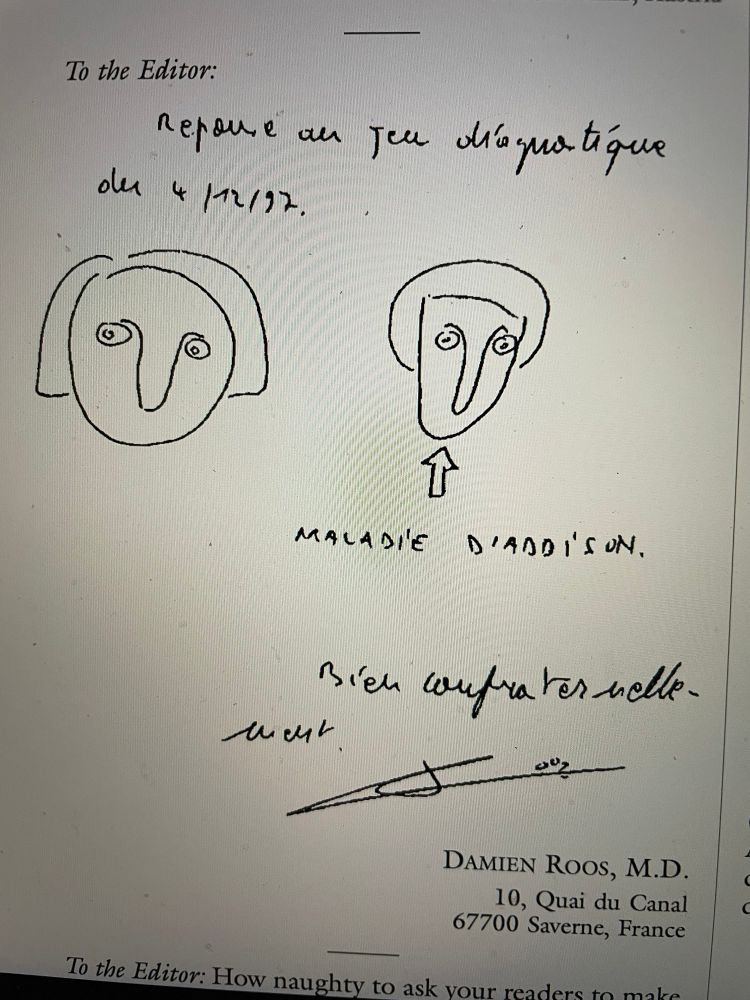 To the Editor:
Reponse au jeu diagnostique
du 4/12/97.
MALADIE D'ADDISON.
Bien confraternelle-
ment.
DAMIEN ROOS, M.D.
10, Quai du Canal
67700 Saverne, France
To the Editor: How naughty to ask your readers to make